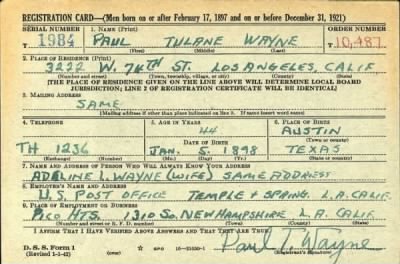 REGISTRATION CARD—(Men born on or after February 17, 1897 and on or before December 31, 1921)
SERIAL NUMBER 1. NAME (Print) ORDER NUMBER
T 1984 PAUL TULANE WAYNE T10,487
(First) (Middle) (Last)
2. PLACE OF RESIDENCE (Print)
3222 W. 74TH ST. LOS ANGELES, CALIF
(Number and street) (Town, township, village, or city) (County) (State)
[THE PLACE OF RESIDENCE GIVEN ON THE LINE ABOVE WILL DETERMINE LOCAL BOARD
JURISDICTION; LINE 2 OF REGISTRATION CERTIFICATE WILL BE IDENTICAL]
3. MAILING ADDRESS
SAME
[Mailing address if other than place indicated on line 2. If same insert word same]
4. TELEPHONE 5. AGE IN YEARS 6. PLACE OF BIRTH
44 AUSTIN
DATE OF BIRTH (Town or county)
TH 1236 JAN. 5 1898 TEXAS
(Mo.) (Day) (Yr.) (State or country)
7. NAME AND ADDRESS OF PERSON WHO WILL ALWAYS KNOW YOUR ADDRESS
ADELINE L. WAYNE (WIFE) SAME ADDRESS
8. EMPLOYER'S NAME AND ADDRESS
U.S. POST OFFICE TEMPLE & SPRING. L.A. CALIF.
9. PLACE OF EMPLOYMENT OR BUSINESS
PICO HTS. 1310 SO. NEW HAMPSHIRE L.A. CALIF.
(Number and street or R. F. D. number) (Town) (County) (State)
I AFFIRM THAT I HAVE VERIFIED ABOVE ANSWERS AND THAT THEY ARE TRUE.
D. S. S. Form 1
(Revised 1-1-42) Paul T. Wayne
(Registrant's signature)